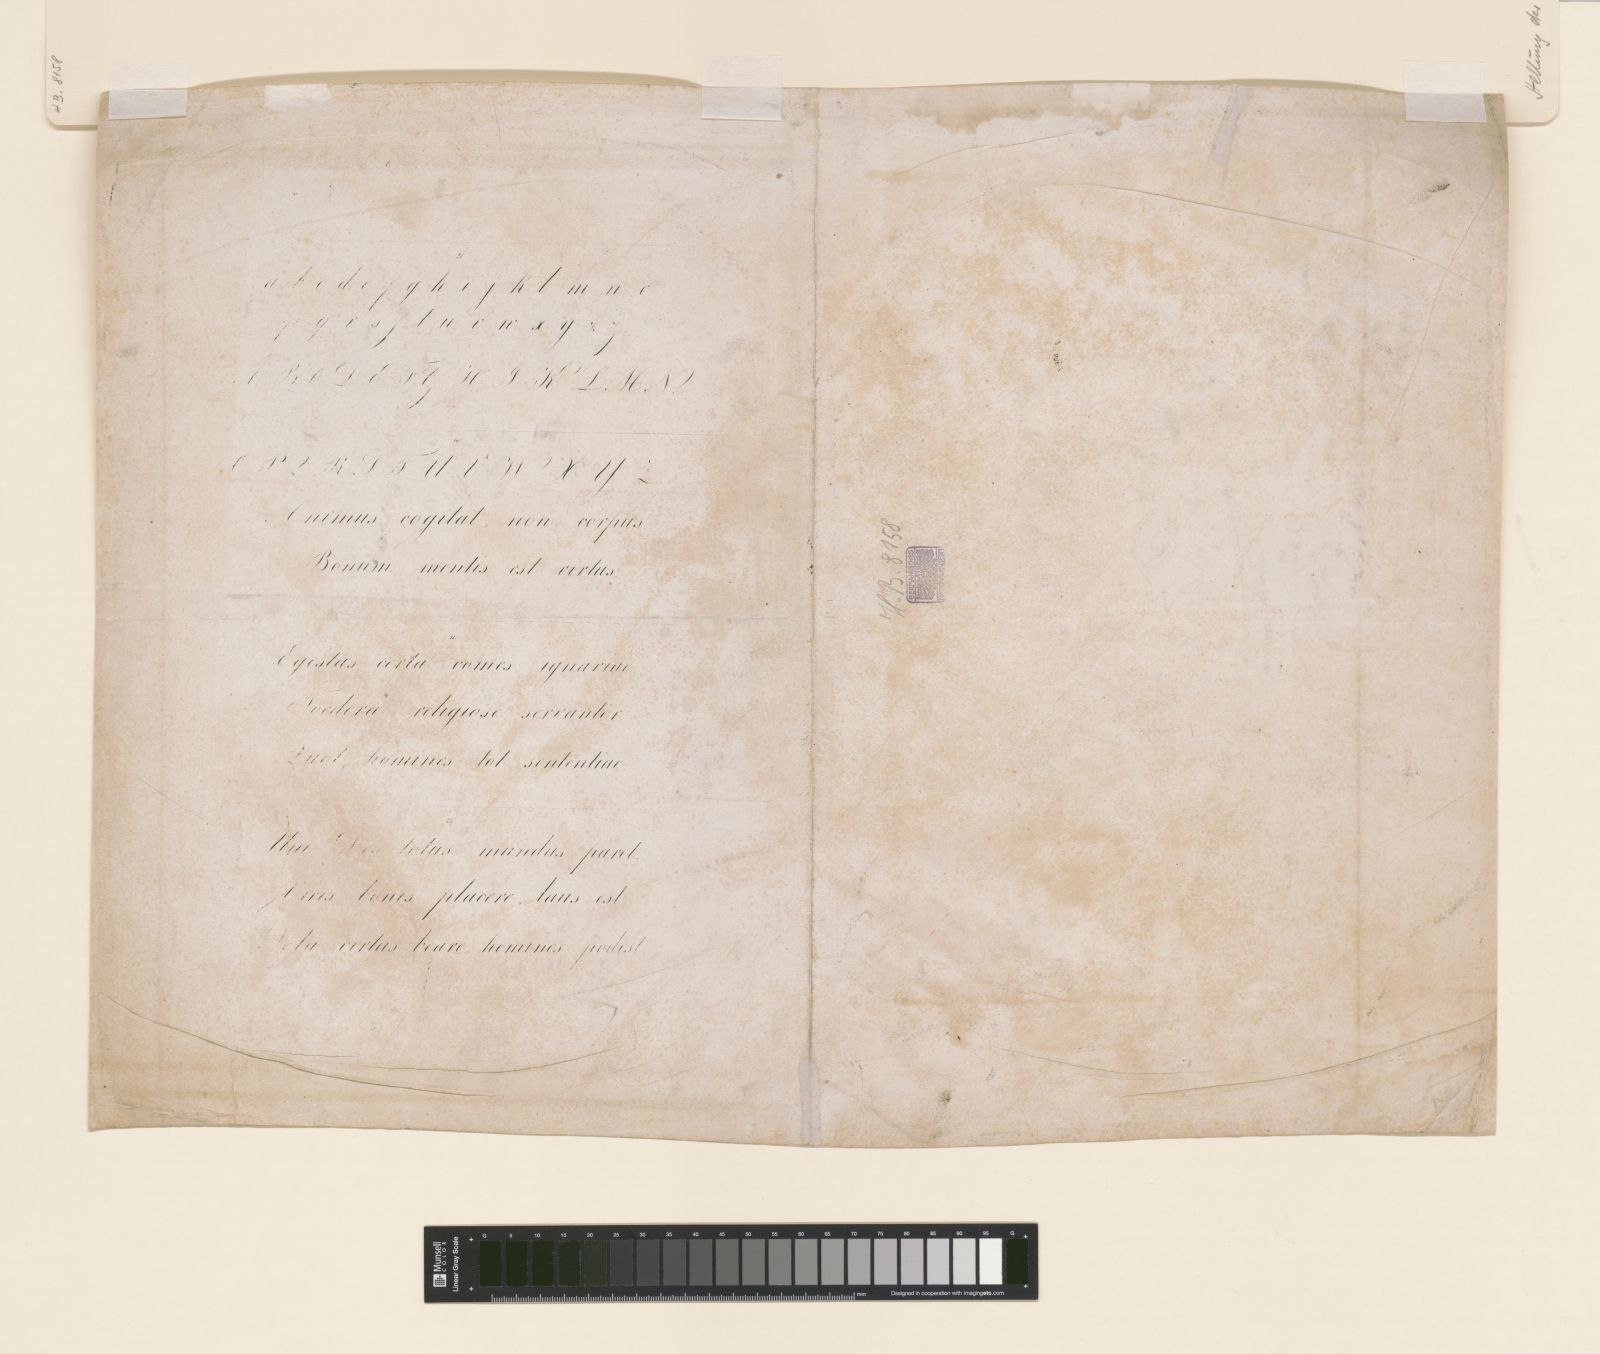 HB. 8158
Stellung des
a b c d e f g h i j k l m n o
p q r s ſ t u v w x y z
A B C D E F G H I K L M N
O P Q R S T U V W X Y Z
Animus cogitat non corpus
Bonum mentis est virtus
Egestas certa comes ignaviae
Foedera religiose serventur
Quot homines tot sententiae
Uni Deo totus mundus paret
Viris bonis placere laus est
virtus beare homines potest
H.B. 8158
Munsell
COLOR
Linear Gray Scale
G 5 10 15 20 25 30 35 40 45 50 55 60 65 70 75 80 85 90 95 G
mm
Designed in cooperation with imagingetc.com